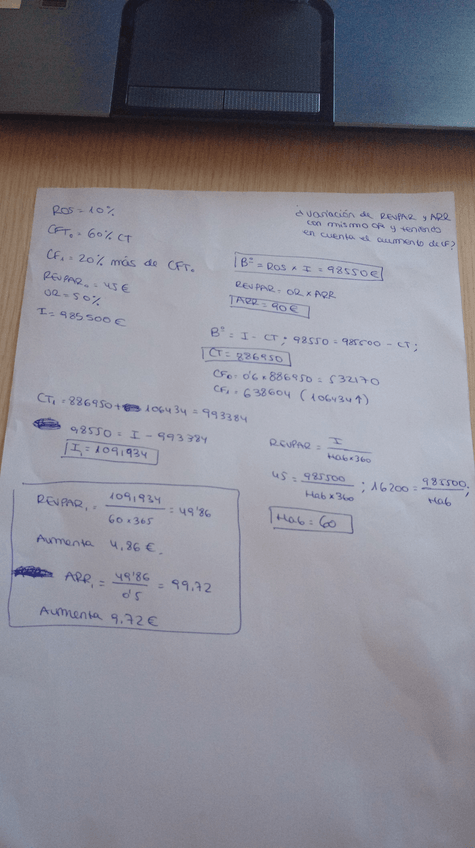 ROS = 10%
CFT₀ = 60% CT
CF₁ = 20% más de CFT₀
REVPAR₀ = 45€
OR = 50%
I = 985500€
¿Variación de REVPAR y ARR
con mismo OR y teniendo
en cuenta el aumento de CF?
Bº = ROS x I = 98550€
REVPAR = OR x ARR
ARR = 90€
Bº = I - CT ; 98550 = 985500 - CT ;
CT = 886950
CF₀ = 0'6 x 886950 = 532170
CF₁ = 638604 (106434↑)
CT₁ = 886950 + 106434 = 993384
98550 = I - 993384
I₁ = 1091934
REVPAR = I / Hab x 360
45 = 985500 / Hab x 360 ; 16200 = 985500 / Hab ;
Hab = 60
REVPAR₁ = 1091934 / 60 x 365 = 49'86
Aumenta 4,86€.
ARR₁ = 49'86 / 0'5 = 99,72
Aumenta 9,72€